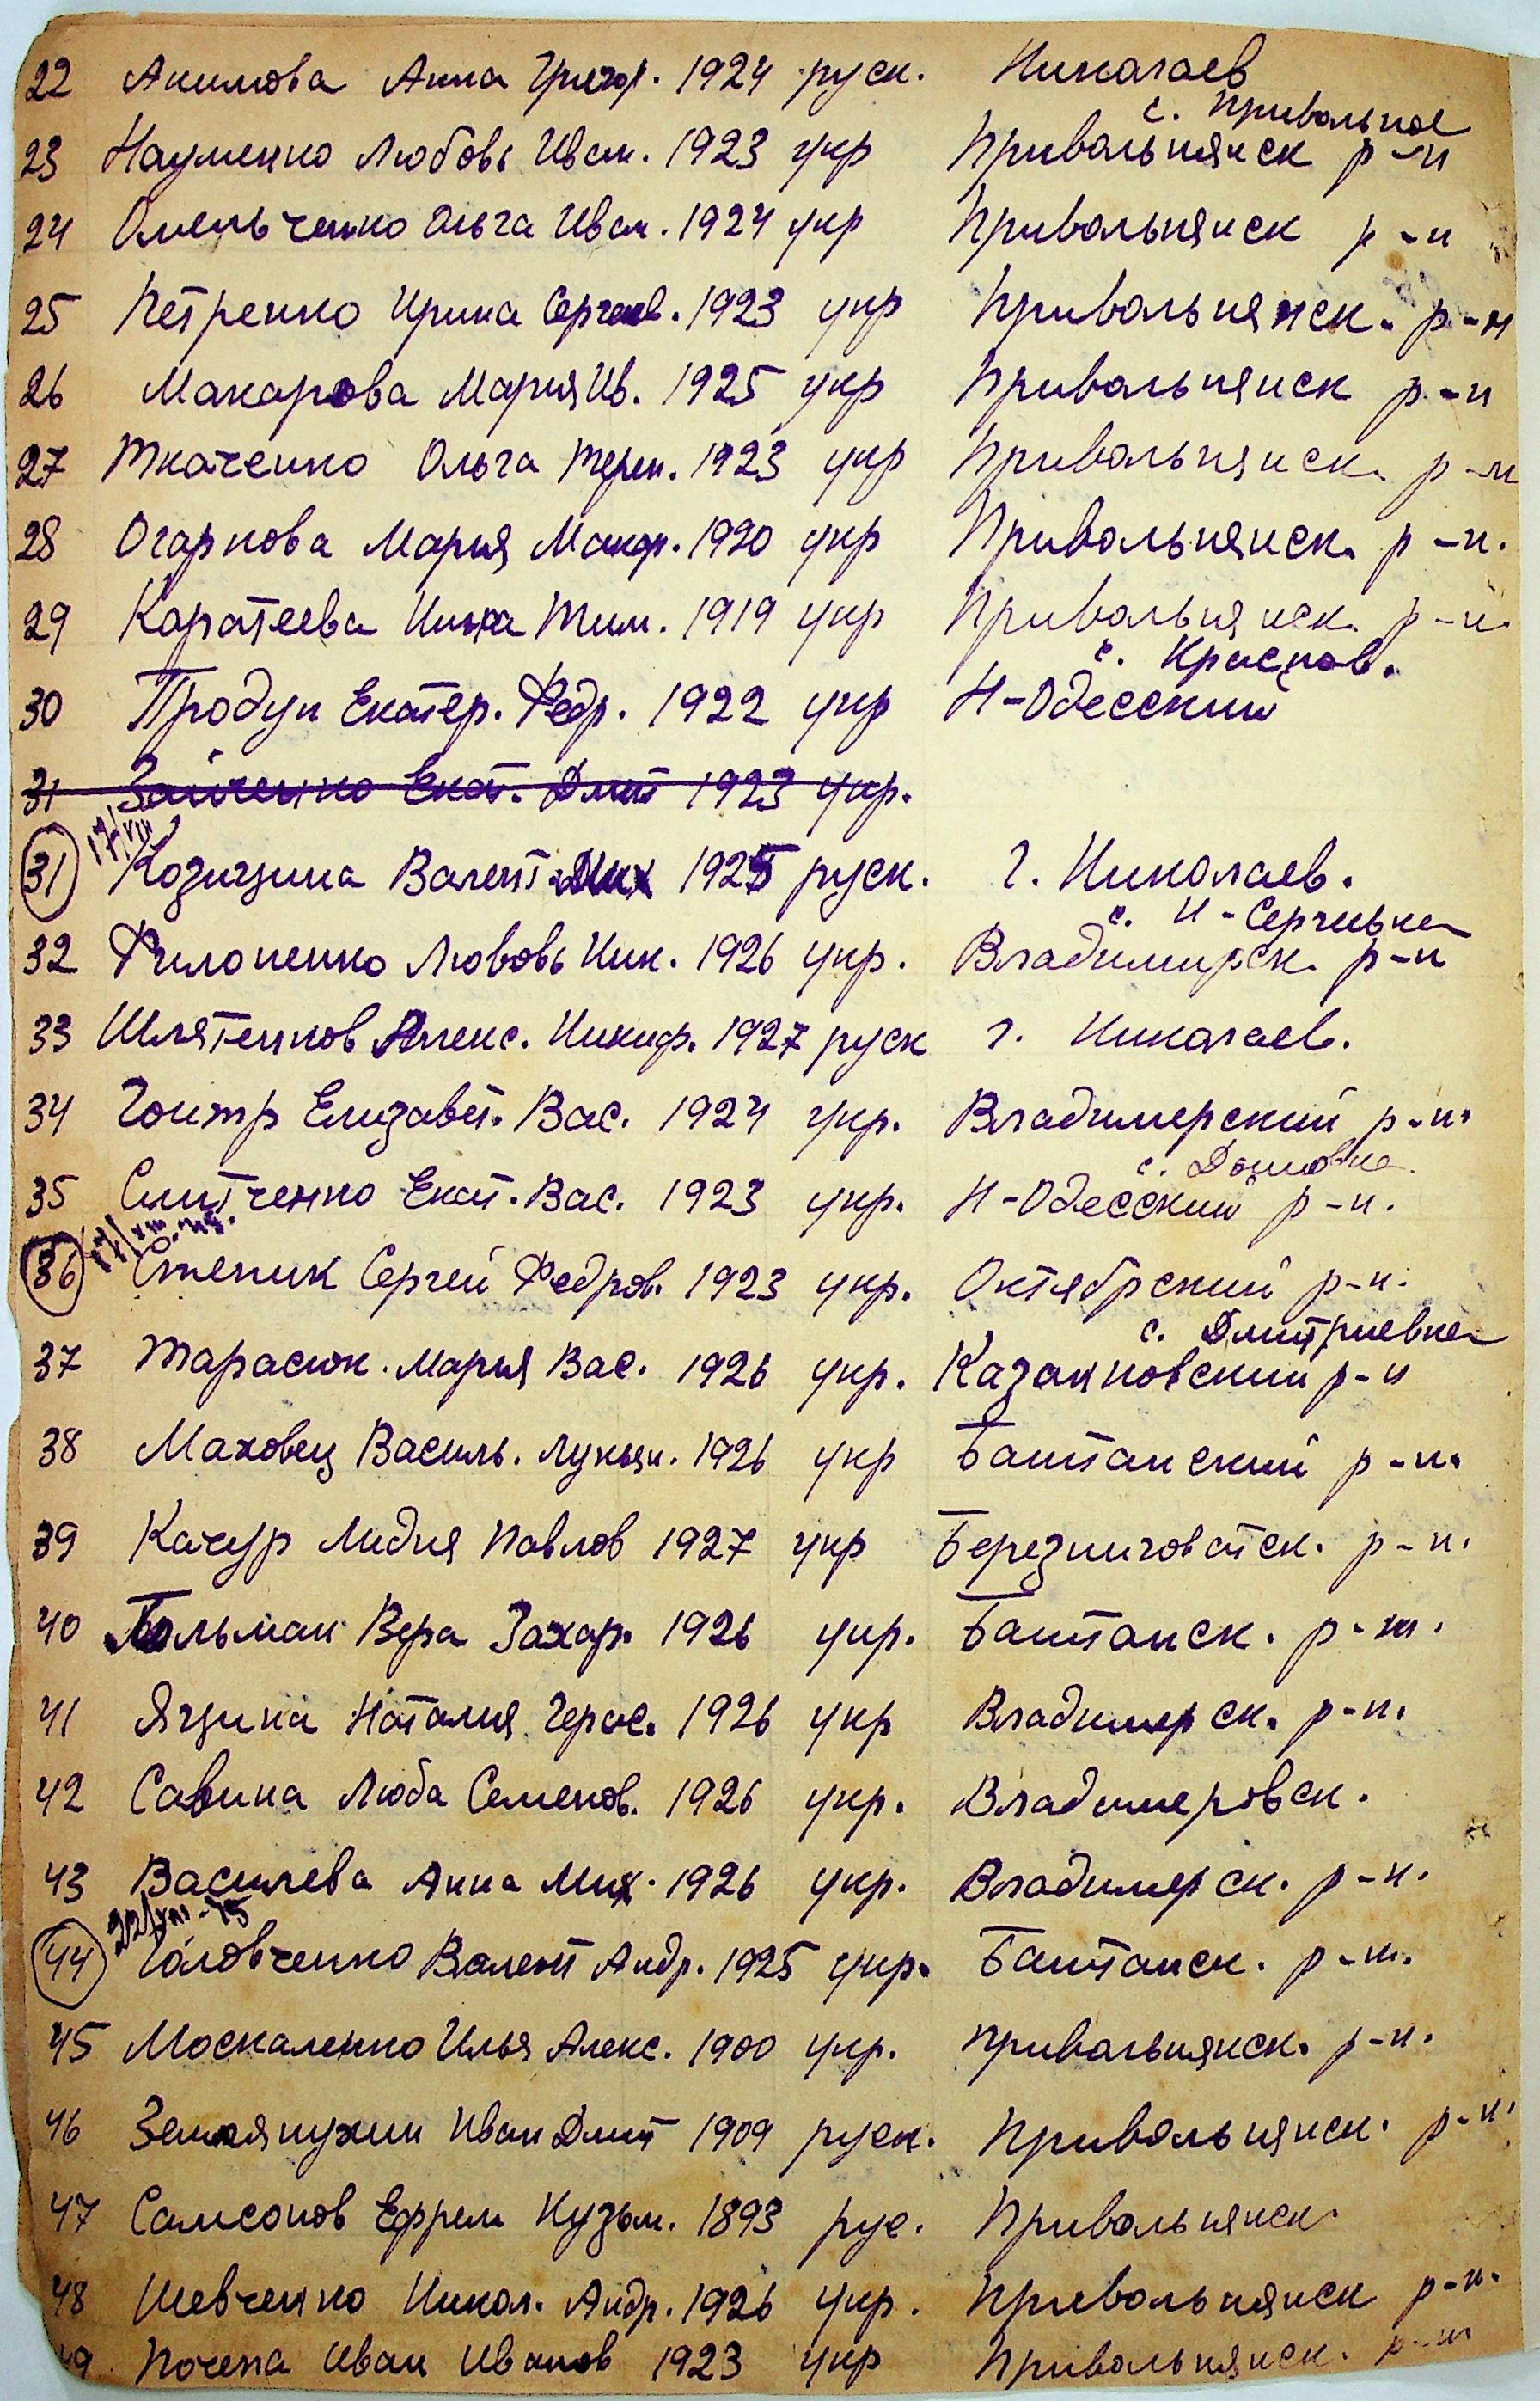 22 Акимова Анна Григор. 1924 руск. Николаев
с. Привольное
23 Науменко Любовь Иван. 1923 укр Привольнянск р-н
24 Омельченко Ольга Иван. 1924 укр Привольнянск р-н
25 Петренко Ирина Сергеев. 1923 укр Привольнянск. р-н
26 Макарова Мария Ив. 1925 укр Привольнянск р-н
27 Ткаченко Ольга Терен. 1923 укр Привольнянск. р-н
28 Огаркова Мария Макар. 1920 укр Привольнянск. р-н.
29 Каратеева Нина Тим. 1919 укр Привольнянск. р-н.
с. Краснов.
30 Продун Екатер. Федр. 1922 укр Н-Одесский
31 Зайченко Екат. Дмит 1923 укр.
17/VIII
31 Козицина Валент. Мих 1925 руск. г. Николаев.
с. Н-Сергиевка
32 Филопенко Любовь Ник. 1926 укр. Владимирск. р-н
33 Шлятенков Алекс. Никиф. 1927 руск г. Николаев.
34 Гонтр Елизавет. Вас. 1924 укр. Владимерский р-н.
с.
35 Смитченко Екат. Вас. 1923 укр. Н-Одесский р-н.
17/VIII
36 Степик Сергей Федров. 1923 укр. Октябрский р-н.
с. Дмитриевка
37 Тарасюк. Мария Вас. 1926 укр. Казанковский р-н
38 Маховец Василь. Лукьян. 1926 укр Баштанский р-н.
39 Качур Лидия Павлов 1927 укр Березниговатск. р-н.
40 Гольман Вера Захар. 1926 укр. Баштанск. р-н.
41 Ящина Наталия Герас. 1926 укр Владимерск. р-н.
42 Савина Люба Семенов. 1926 укр. Владимеровск.
43 Василева Анна Мих. 1926 укр. Владимерск. р-н.
22/VIII-45
44 Головченко Валент Андр. 1925 укр. Баштанск. р-н.
45 Москаленко Илья Алекс. 1900 укр. Привольнянск. р-н.
46 Землянухин Иван Дмит 1909 руск. Привольнянск. р-н.
47 Самсонов Ефрем Кузьм. 1893 рус. Привольнянск.
48 Шевченко Никол. Андр. 1926 укр. Привольнянск р-н.
49 Почепа Иван Иванов 1923 укр Привольнянск. р-н